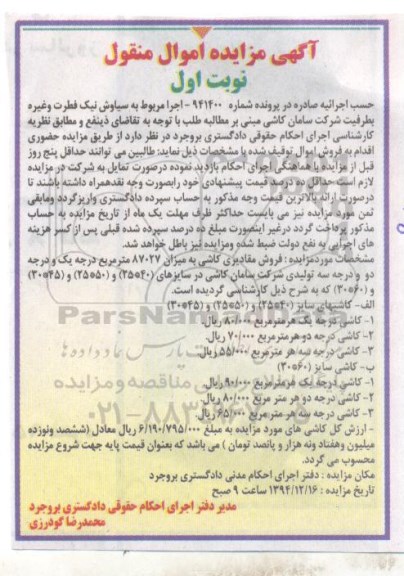 آگهی مزایده اموال منقول
نوبت اول
حسب اجرائیه صادره در پرونده شماره ۹۴۱۴۰۰ - اجرا مربوط به سیاوش نیک فطرت وغیره
بطرفیت شرکت سامان کاشی مبنی بر مطالبه طلب با توجه به تقاضای ذینفع و مطابق نظریه
کارشناسی اجرای احکام حقوقی دادگستری بروجرد در نظر دارد از طریق مزایده حضوری
اقدام به فروش اموال توقیف شده با مشخصات ذیل نماید: طالبین می توانند حداقل پنج روز
قبل از مزایده با هماهنگی اجرای احکام بازدید نموده درصورت تمایل به شرکت در مزایده
لازم است حداقل ده درصد قیمت پیشنهادی خود رابصورت وجه نقدهمراه داشته باشند تا
درصورت ارائه بالاترین قیمت وجه مذکور به حساب سپرده دادگستری واریزگردد ومابقی
ثمن مورد مزایده نیز می بایست حداکثر ظرف مهلت یک ماه از تاریخ مزایده به حساب
مذکور پرداخت گردد درغیر اینصورت مبلغ ده درصد سپرده شده قبلی پس از کسر هزینه
های اجرایی به نفع دولت ضبط شده ومزایده نیز باطل خواهد شد.
مشخصات موردمزایده : فروش مقادیری کاشی به میزان ۸۷۰۲۷ مترمربع درجه یک و درجه
دو و درجه سه تولیدی شرکت سامان کاشی در سایزهای (۴۰*۲۵) و (۵۰*۲۵) و (۴۵*۳۰)
و (۶۰*۳۰) که به شرح ذیل کارشناسی گردیده است.
الف- کاشیهای سایز (۴۰*۲۵) و (۵۰*۲۵) و (۴۵*۳۰)
۱- کاشی درجه یک هرمترمربع ۸۰/۰۰۰ ریال.
۲- کاشی درجه دو هرمترمربع ۷۰/۰۰۰ ریال.
۳- کاشی درجه سه هر مترمربع ۵۵/۰۰۰ ریال.
ب- کاشی سایز (۶۰*۳۰)
۱- کاشی درجه یک هرمترمربع ۹۰/۰۰۰ ریال.
۲- کاشی درجه دو هر متر مربع ۸۰/۰۰۰ ریال.
۳- کاشی درجه سه هر متر مربع ۶۵/۰۰۰ ریال.
- ارزش کل کاشی های مورد مزایده به مبلغ ۶/۱۹۰/۷۹۵/۰۰۰ ریال معادل (ششصد ونوزده
میلیون وهفتاد ونه هزار و پانصد تومان ) می باشد که بعنوان قیمت پایه جهت شروع مزایده
محسوب می گردد.
مکان مزایده : دفتر اجرای احکام مدنی دادگستری بروجرد
تاریخ مزایده : ۱۳۹۴/۱۲/۱۶ ساعت ۹ صبح
مدیر دفتر اجرای احکام حقوقی دادگستری بروجرد
محمدرضا گودرزی
ParsNamadData